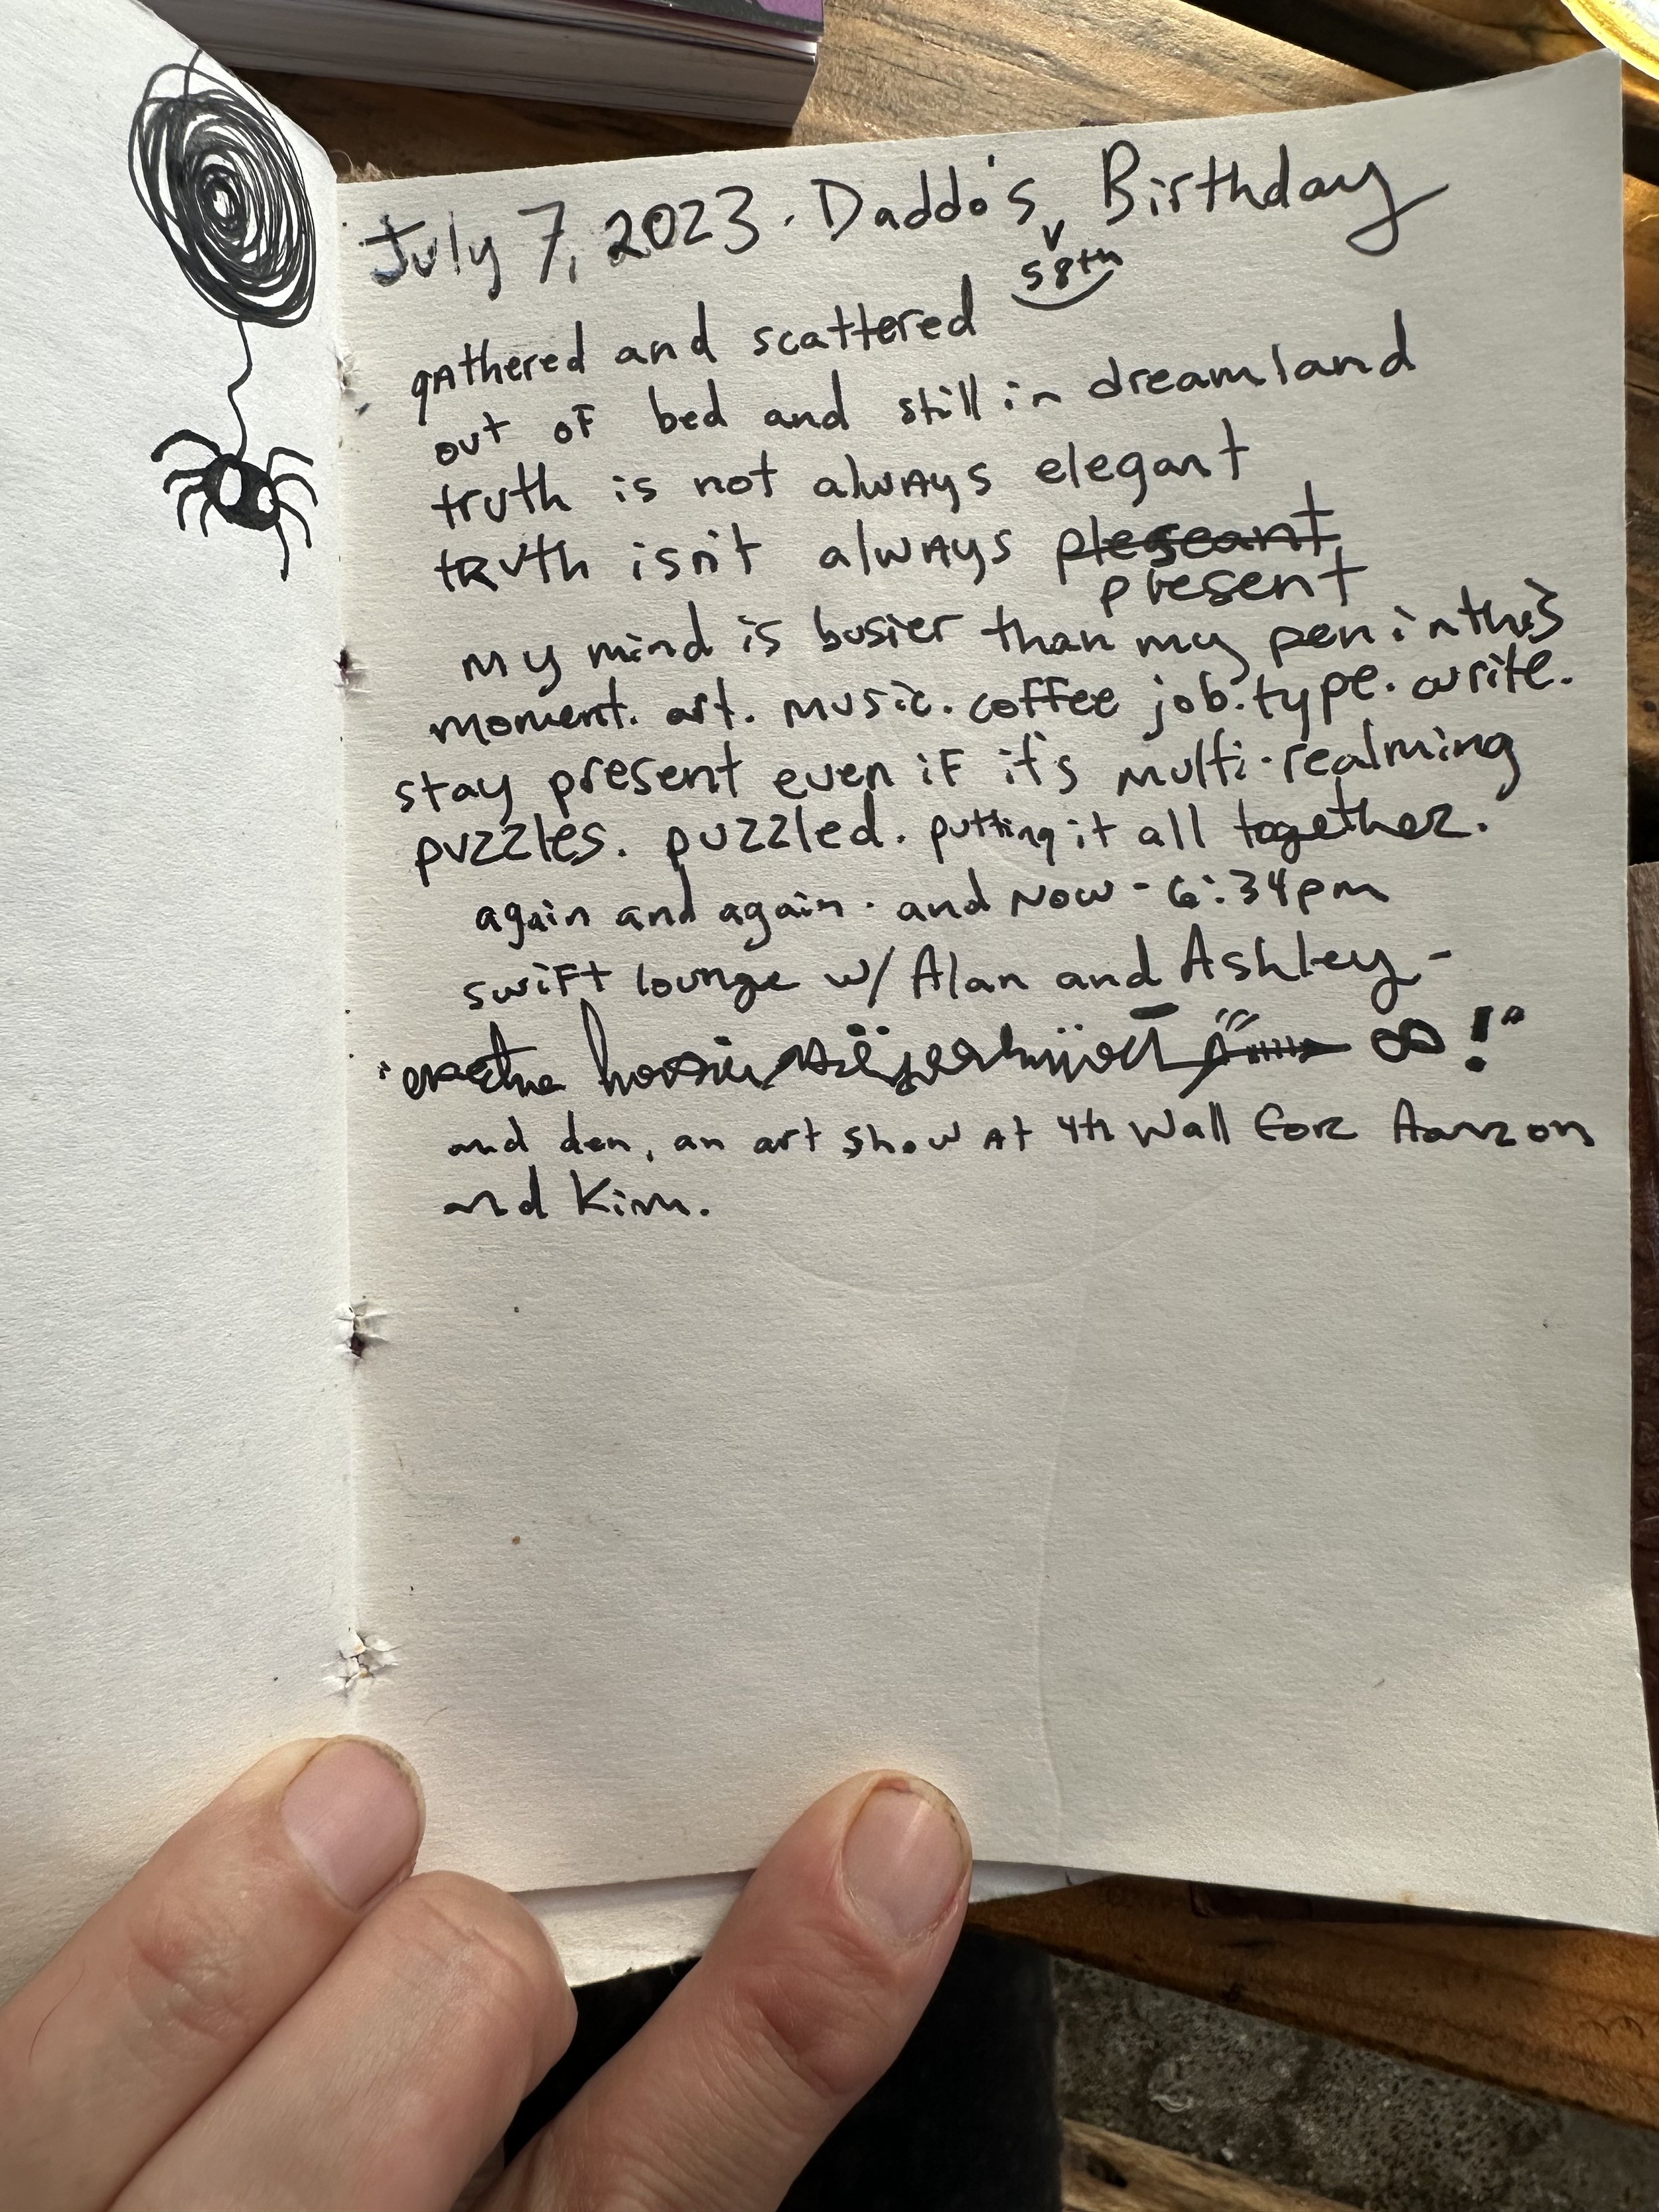 July 7, 2023. Daddo's Birthday
58th
gathered and scattered
out of bed and still in dreamland
truth is not always elegant
truth isn't always plegeant
present
my mind is busier than my pen in this
moment. art. music. coffee job. type. write.
stay present even if it's multi-realming
puzzles. puzzled. putting it all together.
again and again. and now - 6:34pm
swift lounge w/ Alan and Ashley -
∞!"
and den, an art show at 4th Wall for Aarron
and Kim.